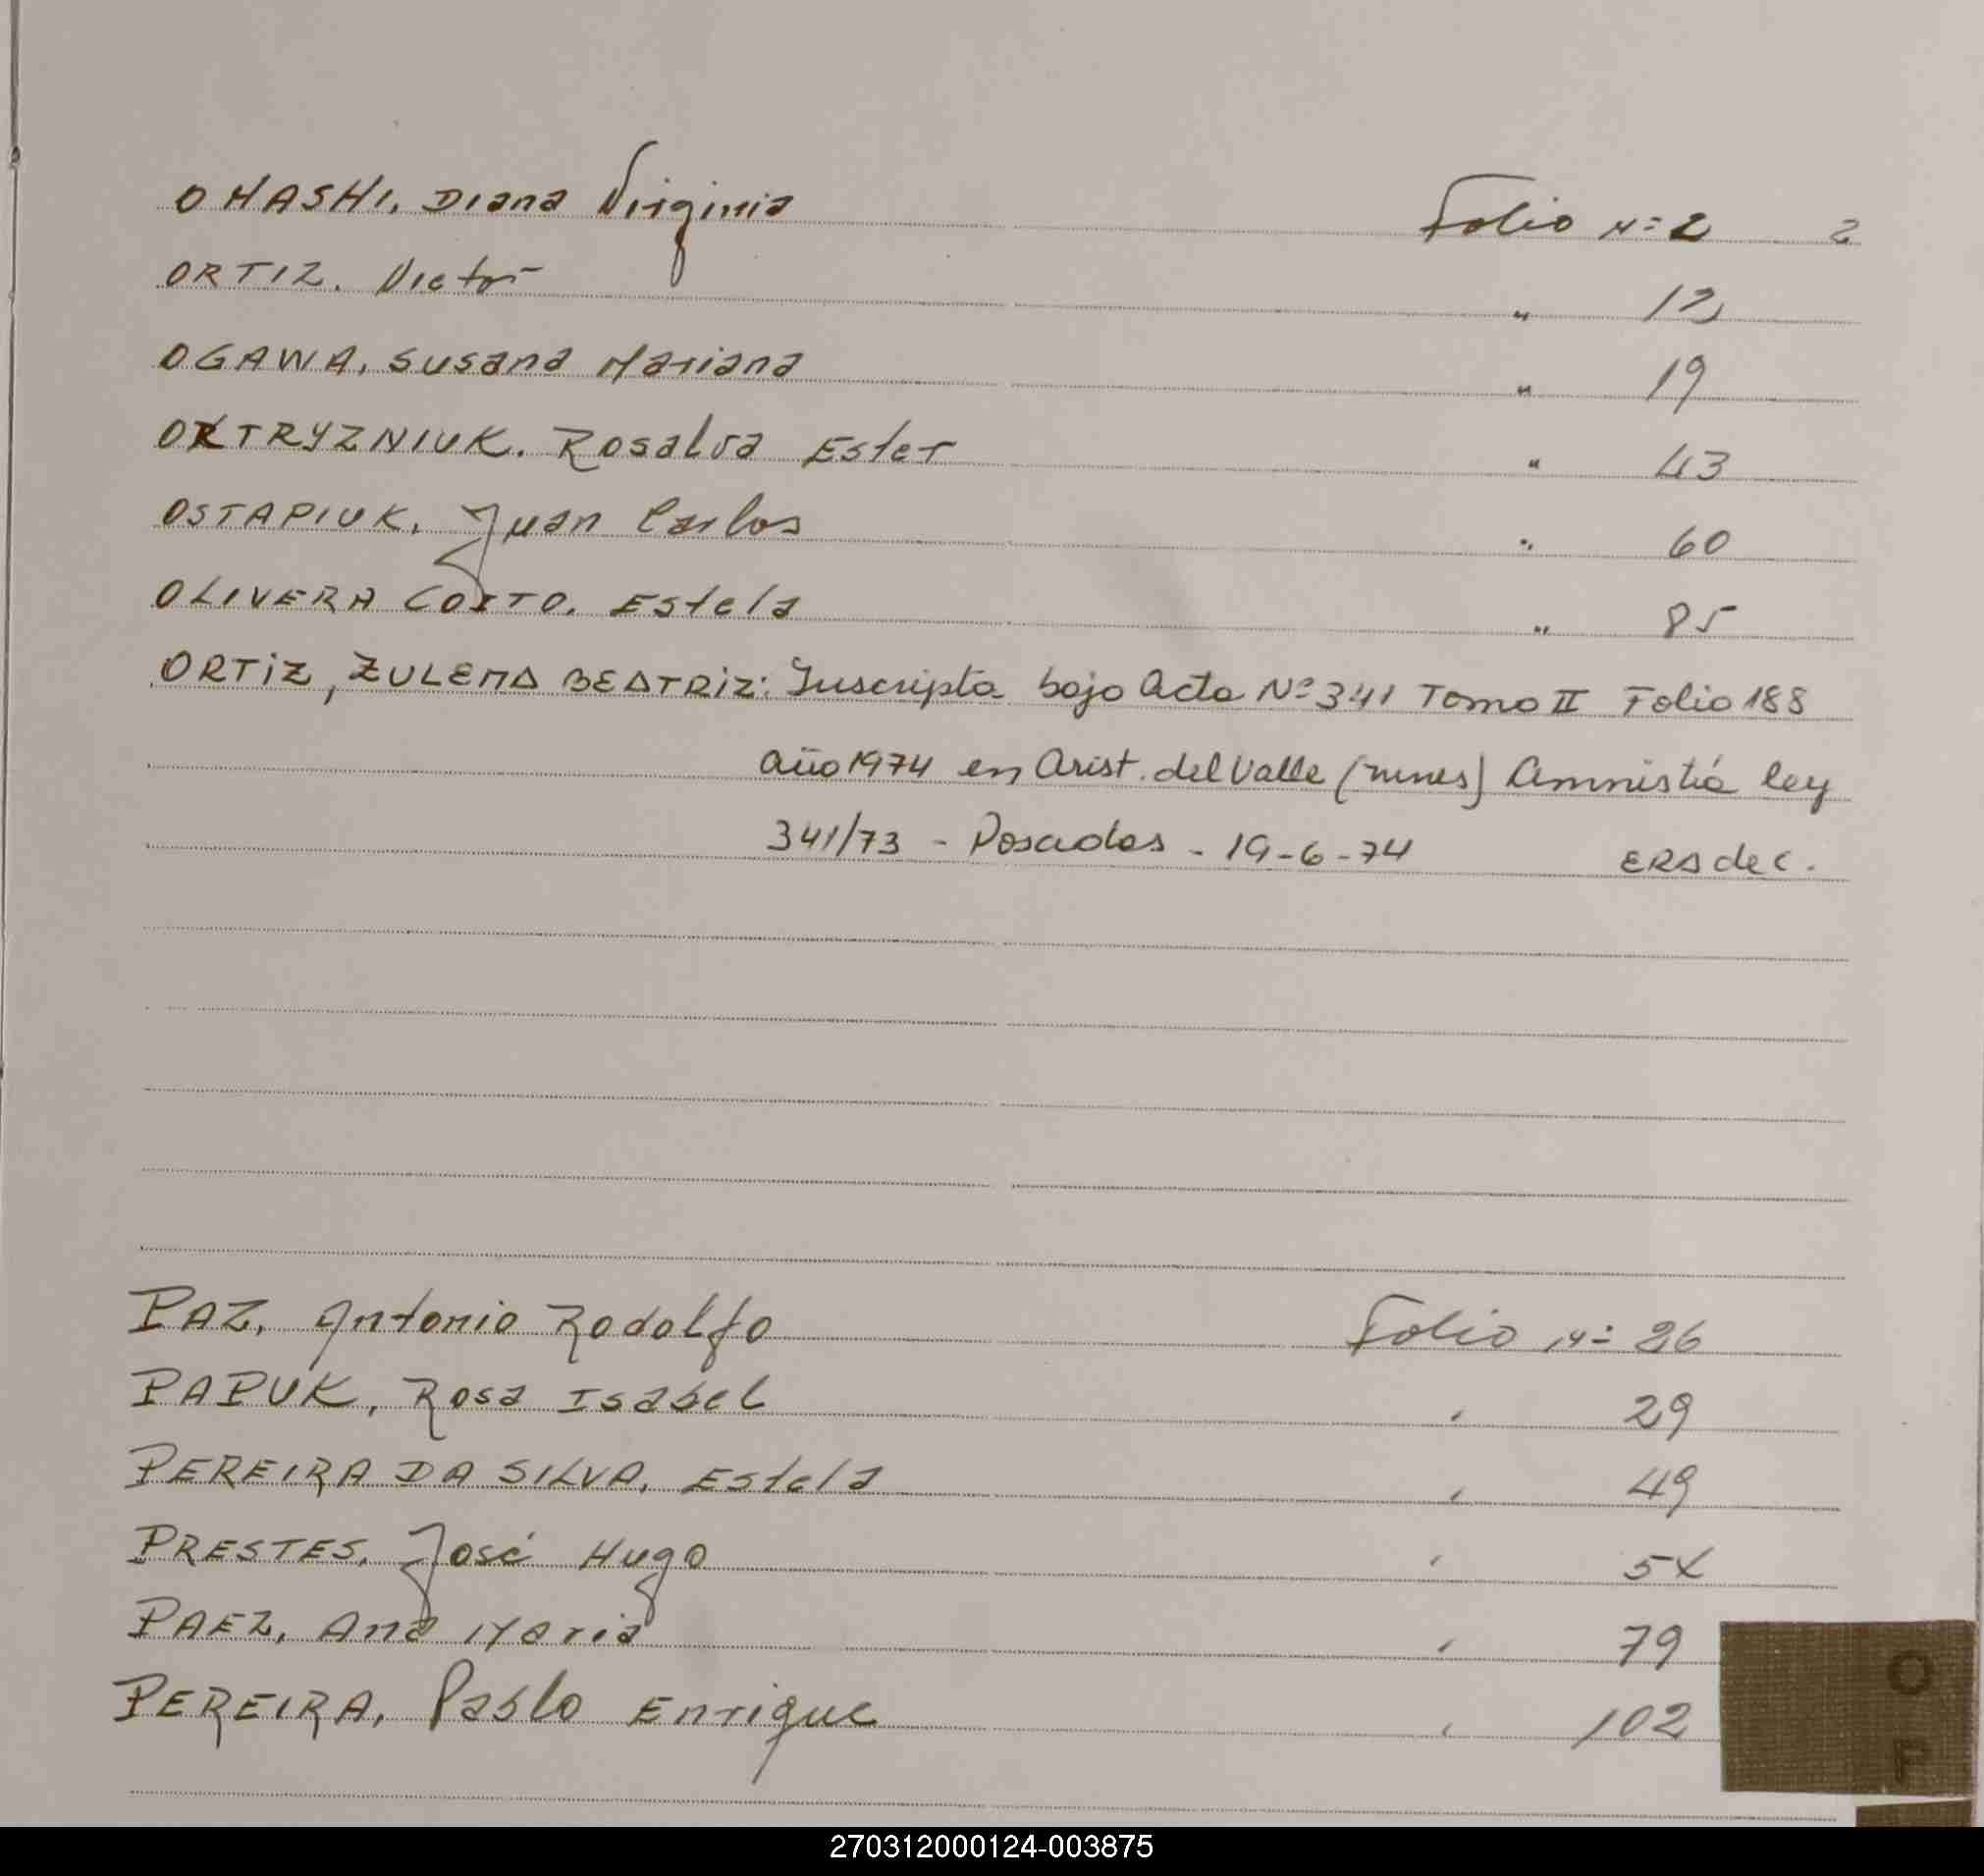 OHASHI, Diana Virginia Folio Nº 2 2
ORTIZ. Victor " 12
OGAWA, Susana Mariana " 19
OKTRYZNIUK. Rosalva Ester " 43
OSTAPIUK, Juan Carlos " 60
OLIVERA COITO, Estela " 85
ORTIZ, ZULEMA BEATRIZ: Inscripta bajo Acta Nº 341 Tomo II Folio 188
año 1974 en Arist. del Valle (mnes) Amnistía ley
341/73 - Posadas - 19-6-74
PAZ, Antonio Rodolfo Folio Nº 26
PAPUK, Rosa Isabel " 29
PEREIRA DA SILVA, Estela " 49
PRESTES, José Hugo " 54
PAEZ, Ana Maria " 79
PEREIRA, Pablo Enrique " 102
O
P
270312000124-003875